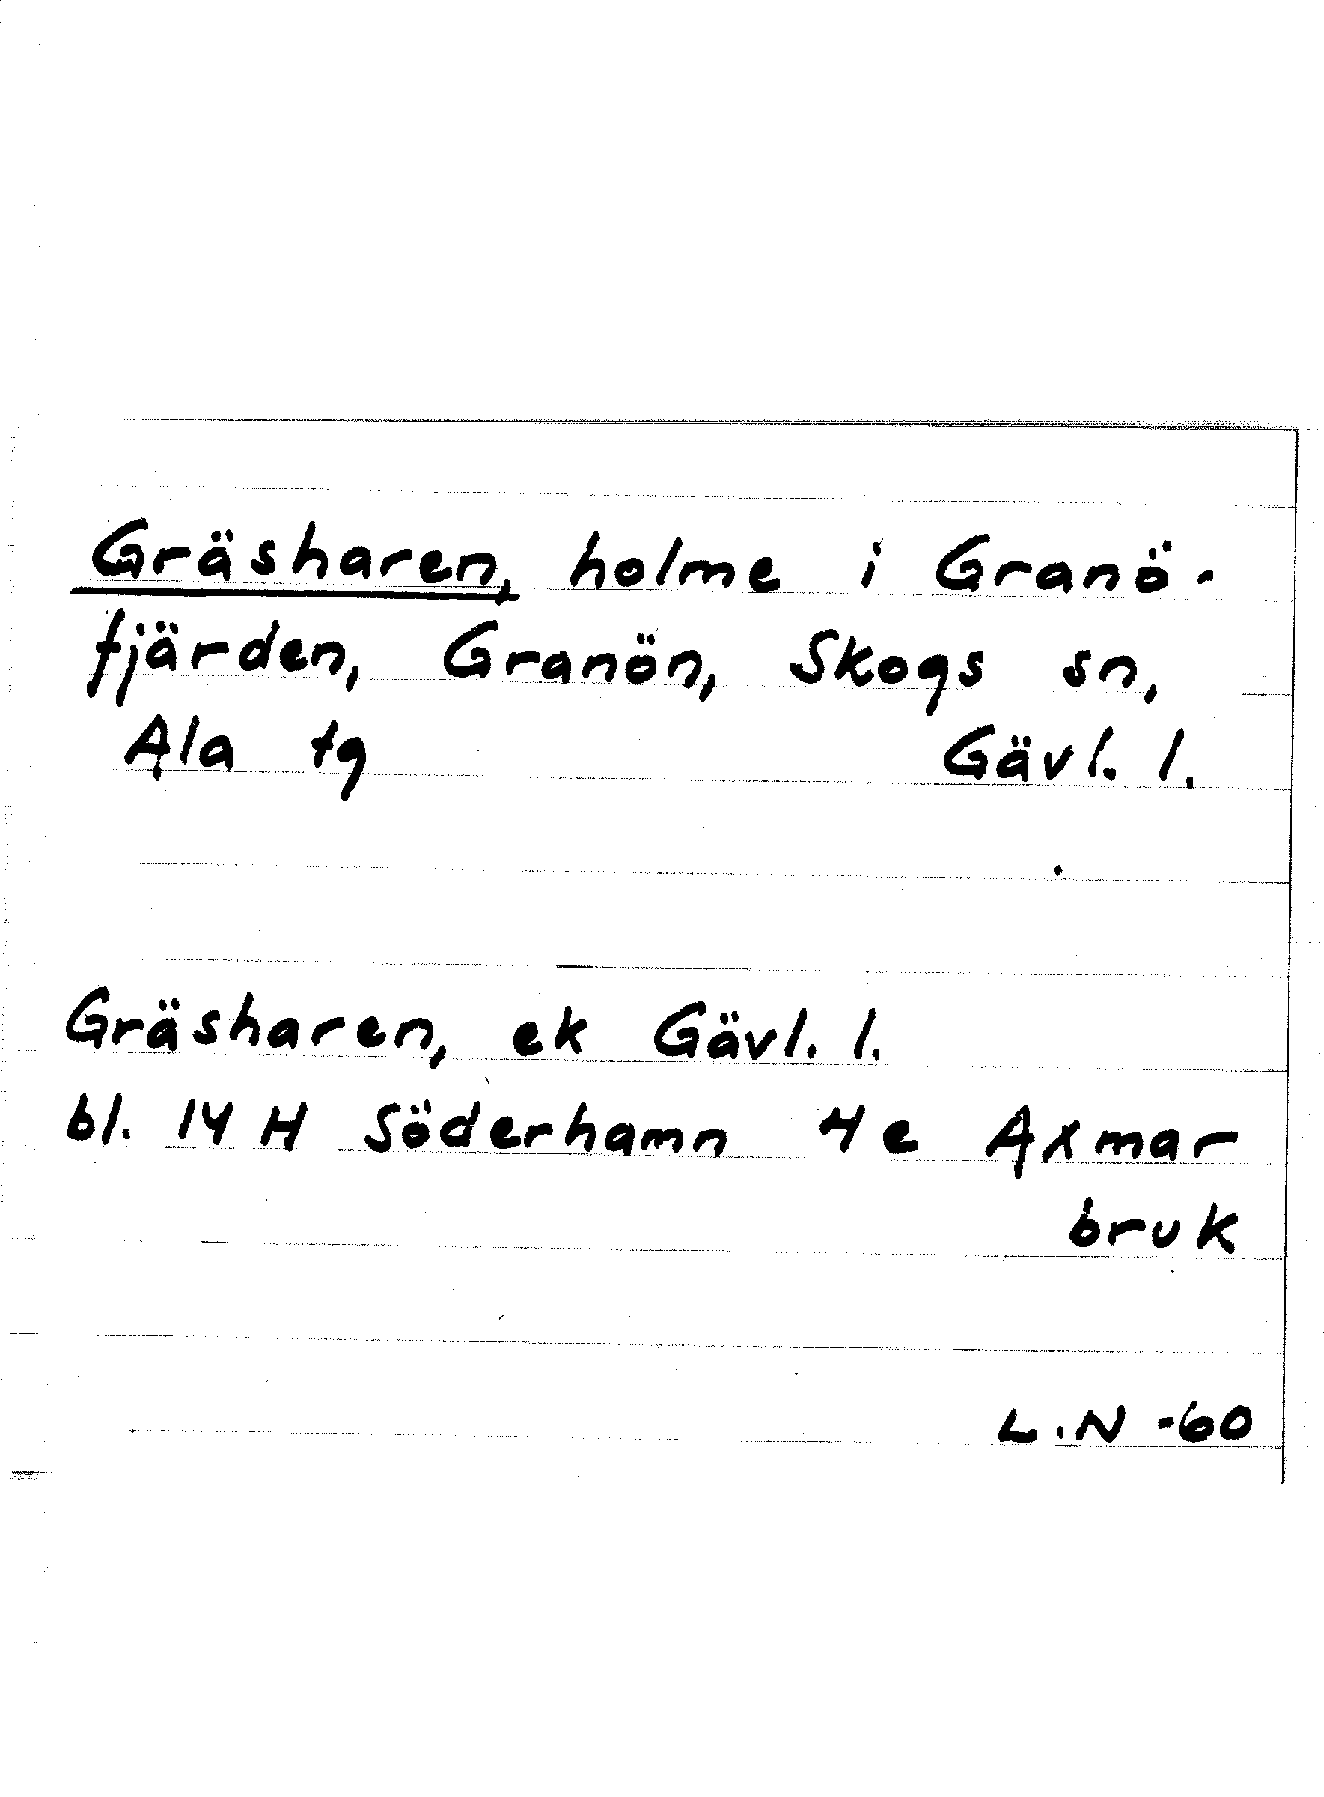 Gräsharen, holme i Granö-
fjärden, Granön, Skogs sn,
Ala tg Gävl. l.
Gräsharen, ek Gävl. l.
bl. 14 H Söderhamn 4e Axmar
bruk
L.N -60